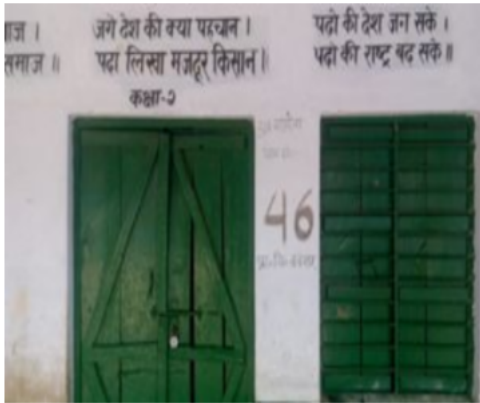 ाज ।
समाज ॥
जगे देश की क्या पहचान ।
पढा लिखा मजदूर किसान ।
पढो की देश जग सके ।
पढो की राष्ट्र बढ सके ॥
कक्षा-२
46